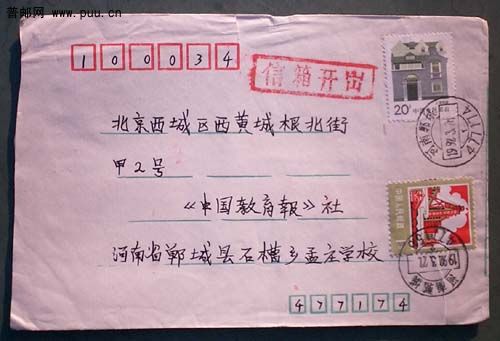 普邮网 www.puu.cn
100034
信箱开出
20分
北京西城区西黄城根北街
甲2号
《中国教育報》社
中国人民邮政
河南省郸城县石槽乡孟庄学校
477174